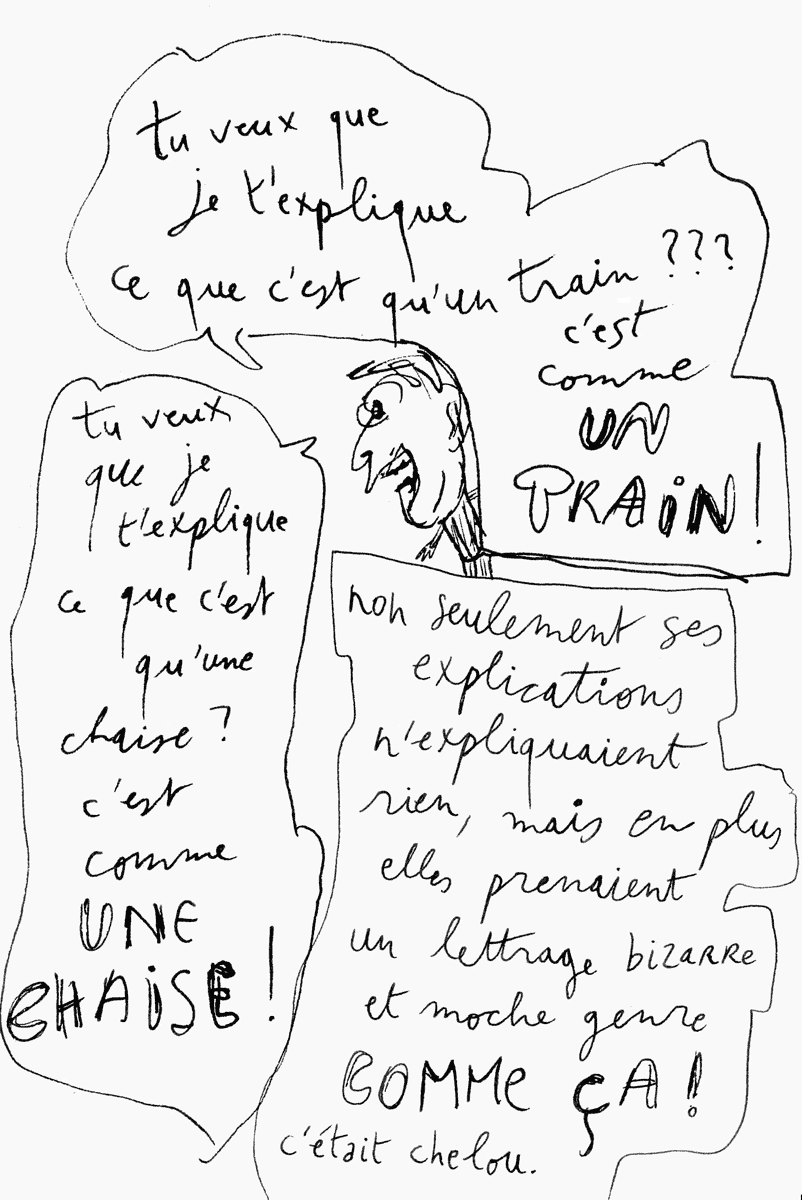 tu veux que
je t'explique
ce que c'est qu'un train ???
c'est
comme
UN
TRAIN !
tu veux
que je
t'explique
ce que c'est
qu'une
chaise ?
c'est
comme
UNE
CHAISE !
non seulement ses
explications
n'expliquaient
rien, mais en plus
elles prenaient
un lettrage bizaRRe
et moche genre
COMMe ÇA !
c'était chelou.